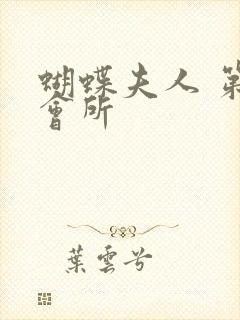 蝴蝶夫人 第
會所
葉雲兮